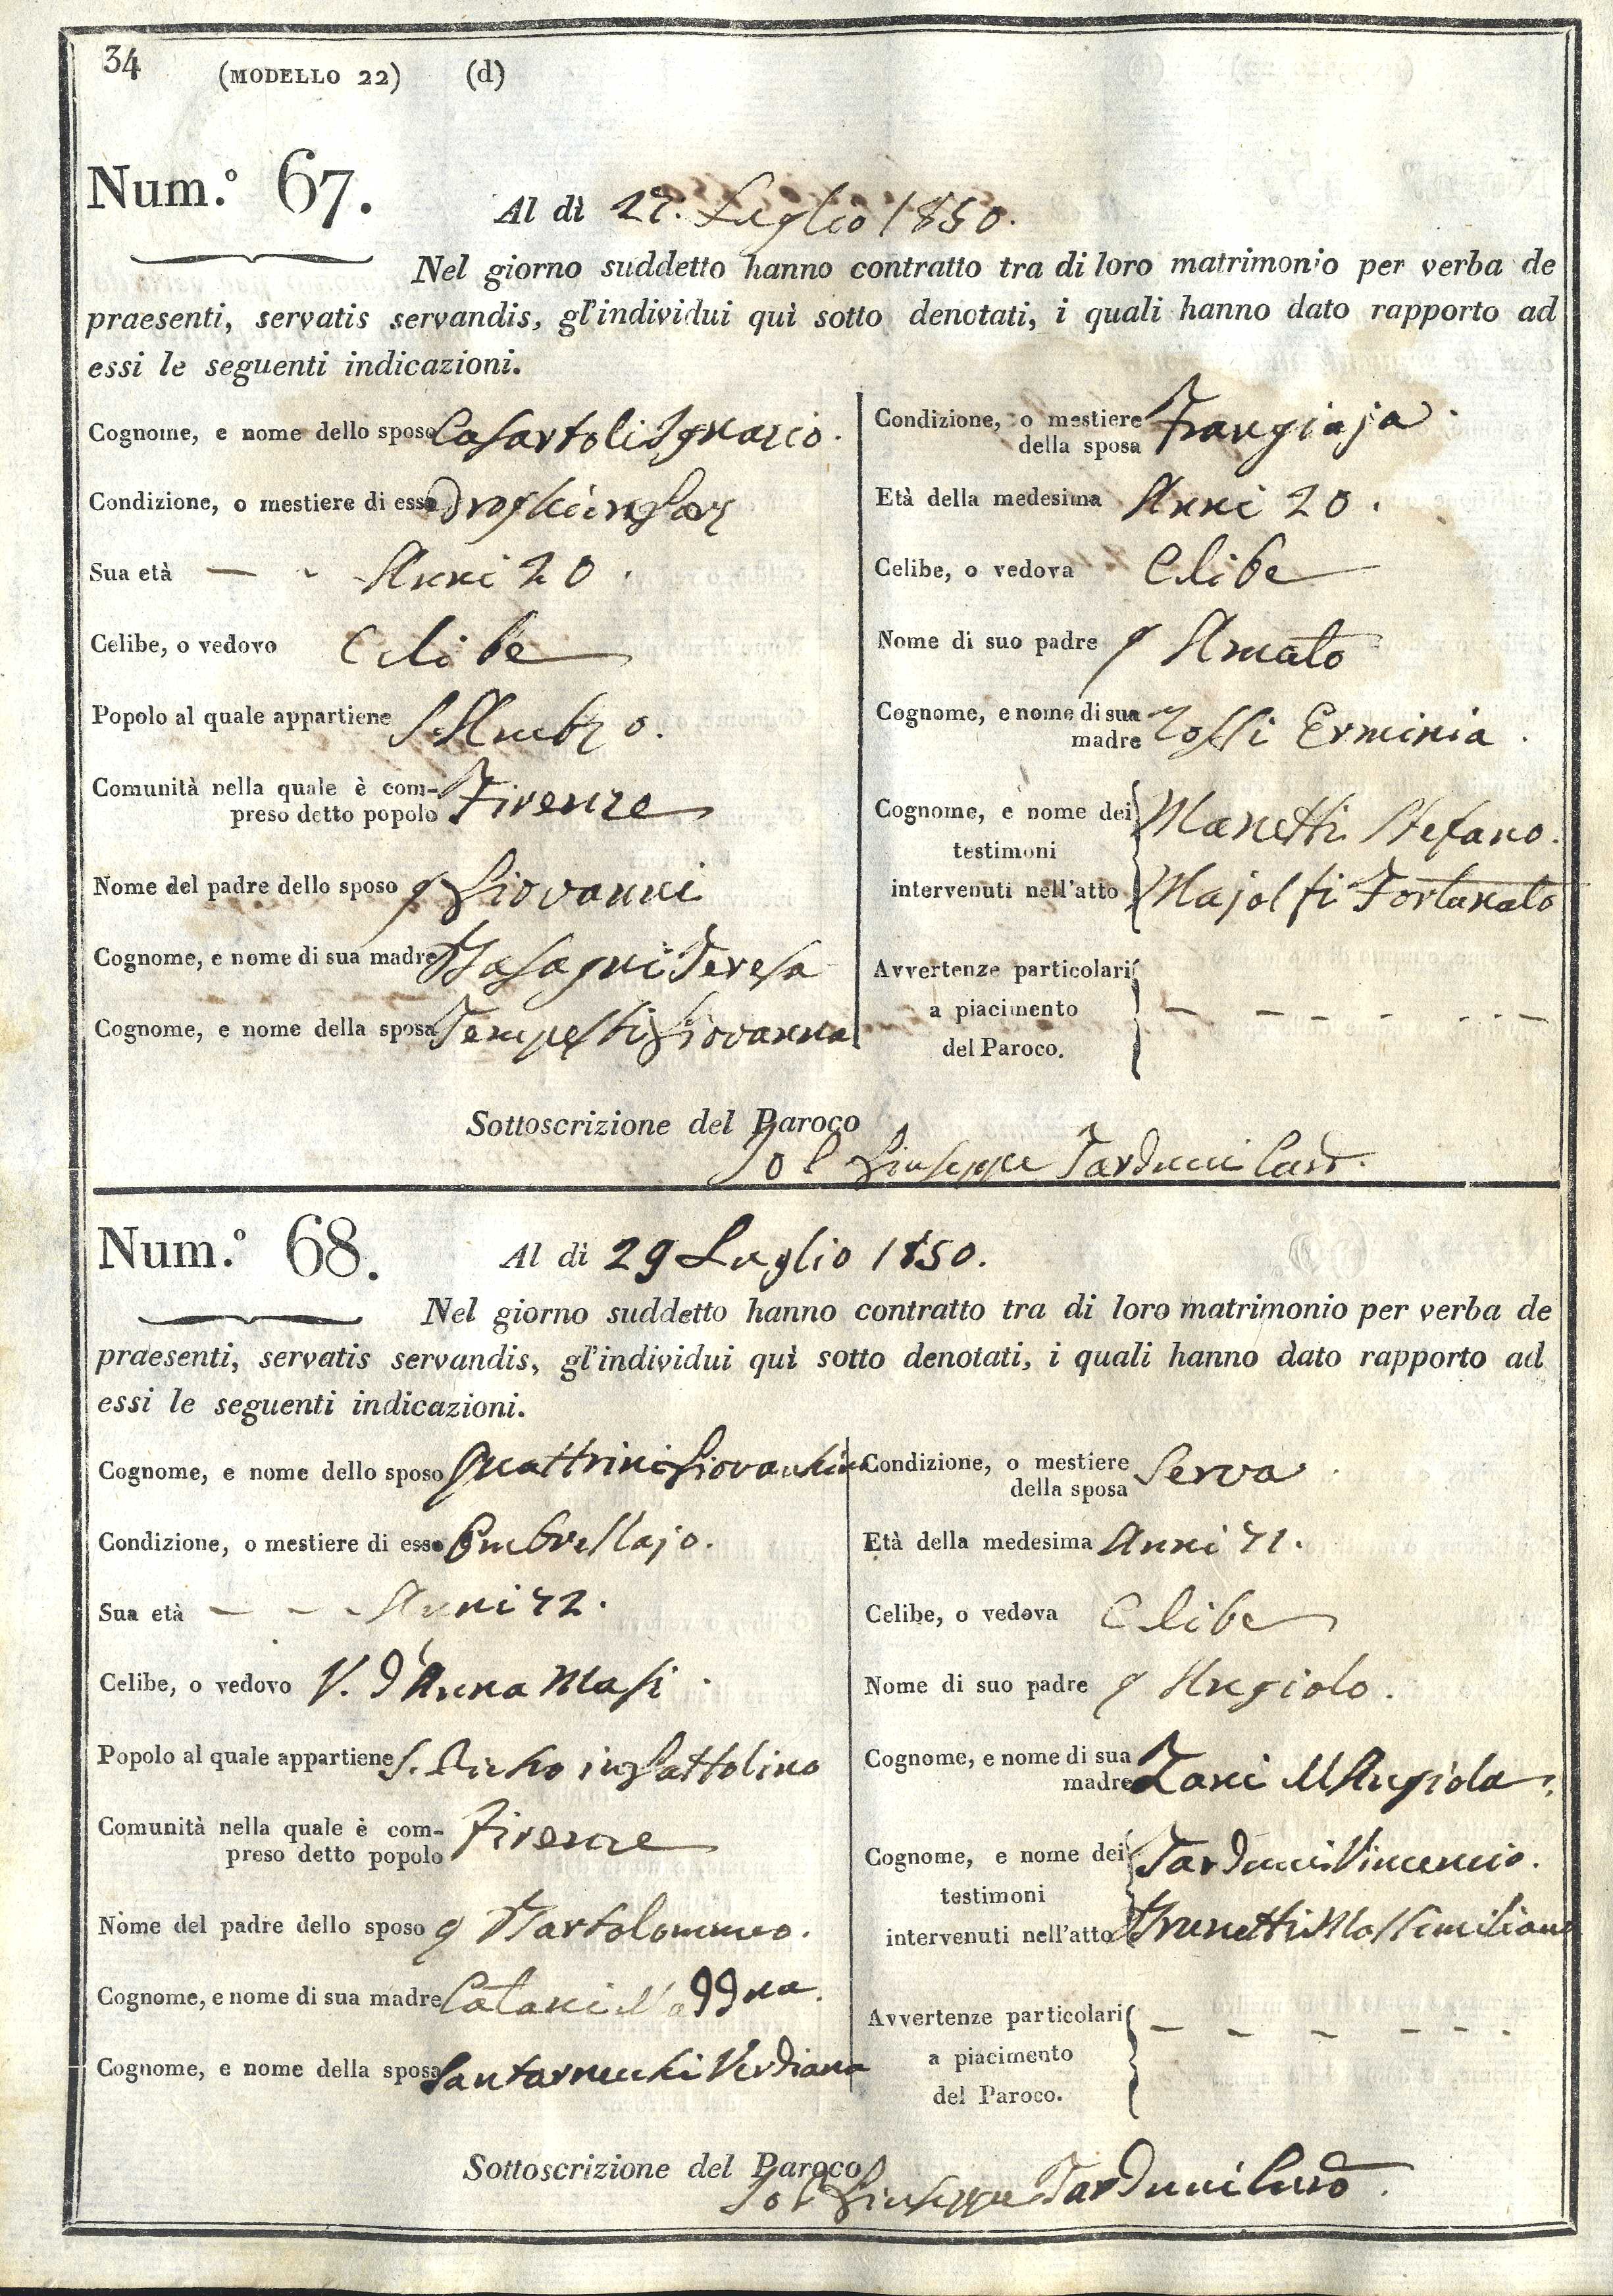 34 (MODELLO 22) (d)
Num.º 67.
Al dì Luglio 1850.
Nel giorno suddetto hanno contratto tra di loro matrimonio per verba de
praesenti, servatis servandis, gl'individui quì sotto denotati, i quali hanno dato rapporto ad
essi le seguenti indicazioni.
Cognome, e nome dello sposo Casartoli Ignazio.
Condizione, o mestiere di esso
Sua età — - - Anni 20.
Celibe, o vedovo Celibe
Popolo al quale appartiene S. Ambro.
Comunità nella quale è com-
preso detto popolo Firenze
Nome del padre dello sposo q Giovanni
Cognome, e nome di sua madre Basagni Teresa
Cognome, e nome della sposa Tempesti Giovanna
Condizione, o mestiere
della sposa Frangiaja.
Età della medesima Anni 20.
Celibe, o vedova Celibe
Nome di suo padre q Amato
Cognome, e nome di sua
madre Rossi Erminia.
Cognome, e nome dei Manetti Stefano.
testimoni
intervenuti nell'atto Majolfi Fortunato
Avvertenze particolari
a piacimento - - - - - - -
del Paroco.
Sottoscrizione del Paroco
Giuseppe Tarducci Curo.
Num.º 68.
Al dì 29 Luglio 1850.
Nel giorno suddetto hanno contratto tra di loro matrimonio per verba de
praesenti, servatis servandis, gl'individui quì sotto denotati, i quali hanno dato rapporto ad
essi le seguenti indicazioni.
Cognome, e nome dello sposo Quattrini Giovacchino
Condizione, o mestiere di esso Ombrellajo.
Sua età - - - Anni 72.
Celibe, o vedovo V. d'Anna Masi.
Popolo al quale appartiene S. Pietro in Gattolino
Comunità nella quale è com-
preso detto popolo Firenze
Nome del padre dello sposo q Bartolommeo.
Cognome, e nome di sua madre Catani Maddna.
Cognome, e nome della sposa Santarnecchi Verdiana
Condizione, o mestiere
della sposa Serva.
Età della medesima Anni 71.
Celibe, o vedova Celibe
Nome di suo padre q Angiolo.
Cognome, e nome di sua
madre Zani M Angiola.
Cognome, e nome dei Tarducci Vincenzio.
testimoni
intervenuti nell'atto Brunetti Massimiliano
Avvertenze particolari
a piacimento - - - - - -
del Paroco.
Sottoscrizione del Paroco
Giuseppe Tarducci Curo.